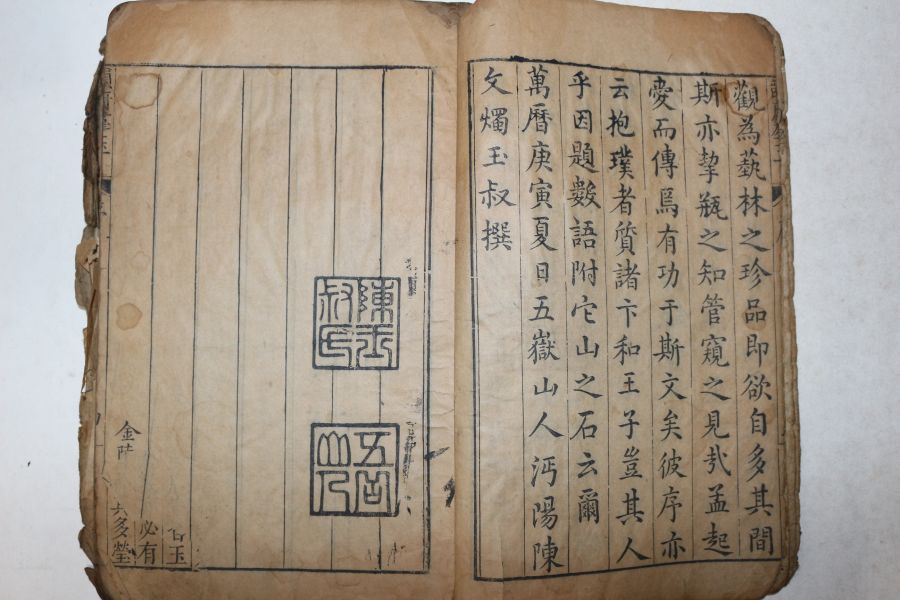 觀為藝林之珍品即欲自多其間
斯亦挈瓶之知管窺之見㢤孟起
愛而傳焉有功于斯文矣彼序亦
云抱璞者質諸卞和王子豈其人
乎因題數語附它山之石云爾
萬曆庚寅夏日五嶽山人沔陽陳
文燭玉叔撰
陳玉
叔氏
五岳
山人
玉
必有
多瑩
金